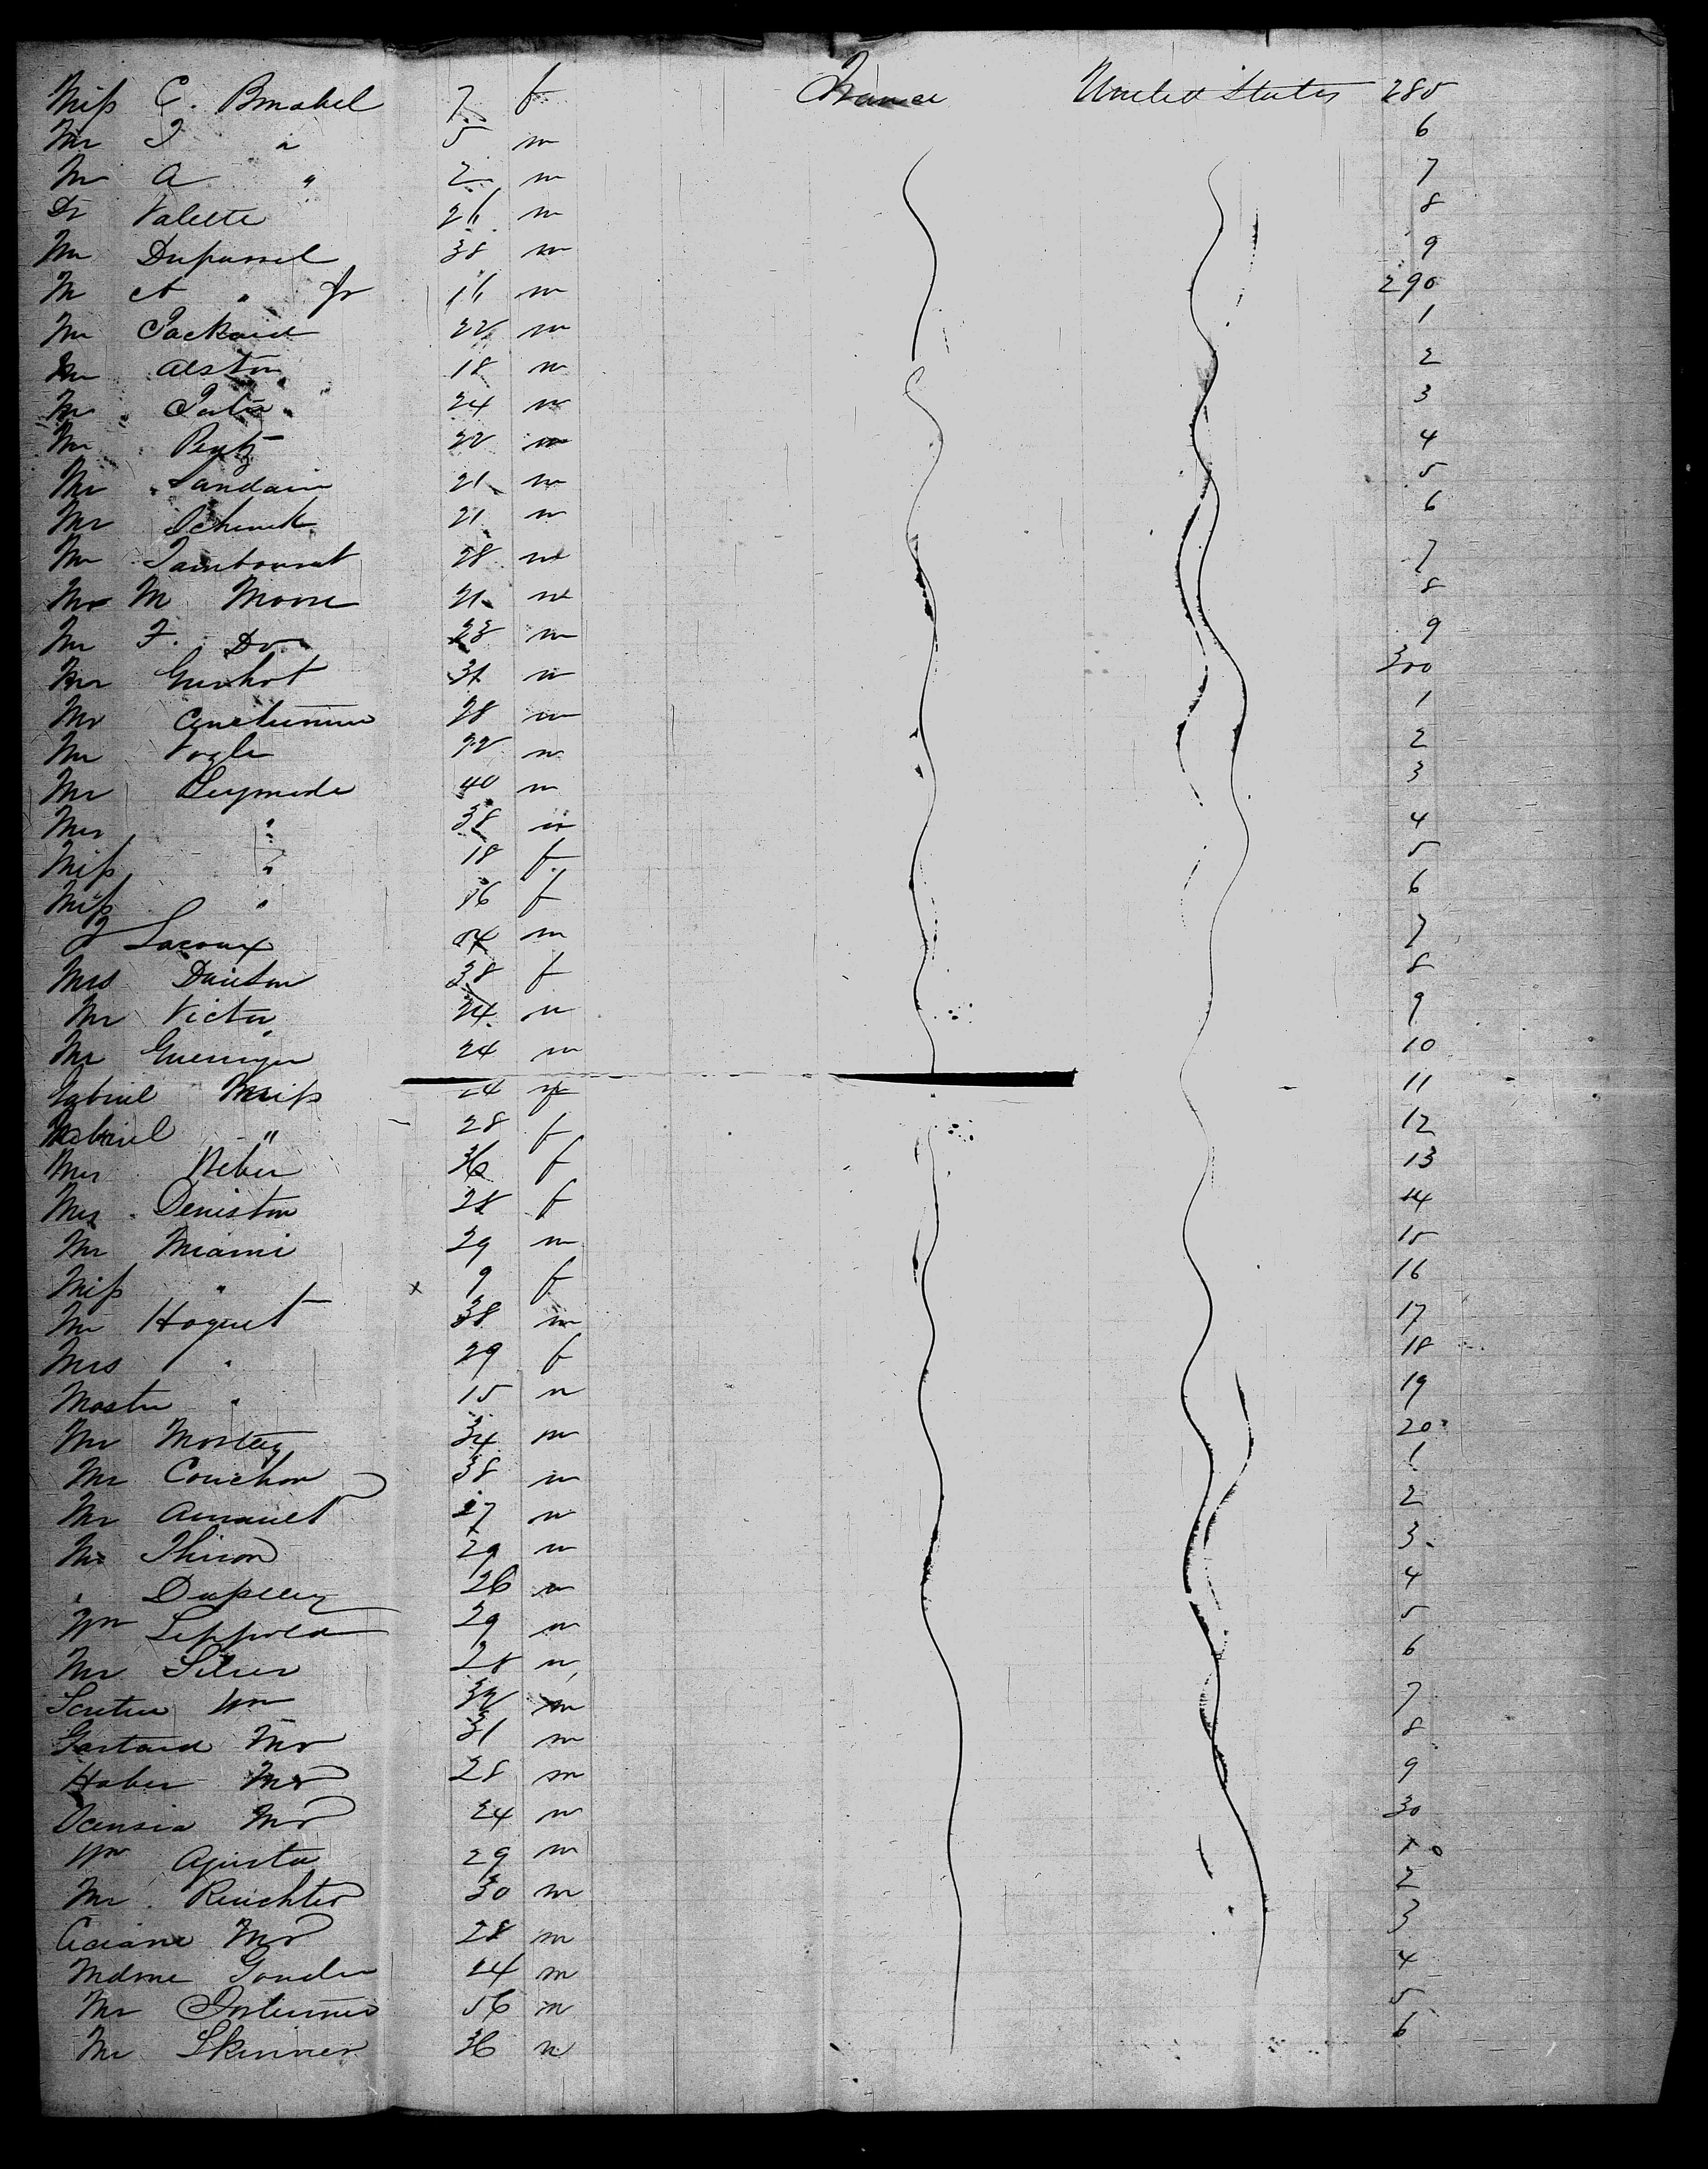 Miss C. Brnabel 7 f France United States 285
Mr J " 5 m 6
Mr A " 2 m 7
Dr Valette 26 m 8
Mr Dupassel 38 m 9
M A " Jr 16 m 290
Mr Packard 22 m 1
Mr Alston 18 m 2
Mr 24 m 3
Mr 22 m 4
Mr Landain 21 m 5
Mr Schenck 21 m 6
Mr Tambourat 28 m 7
Mr M Moore 21 m 8
Mr F. Do 23 m 9
Mr 31 m 300
Mr 28 m 1
Mr Vogle 22 m 2
Mr Leymede 40 m 3
Mrs " 38 m 4
Miss " 18 f 5
Miss " 16 f 6
J Lacoux m 7
Mrs Dauton 38 f 8
Mr Victor 24 m 9
Mr 24 m 10
Gabriel Miss 24 11
Gabriel " 28 f 12
Mrs Weber 36 f 13
Mrs Deniston 28 f 14
Mr Miami 29 m 15
Miss " x 9 f 16
Mr Hoguet 38 m 17
Mrs " 29 f 18
Master " 15 m 19
Mr 34 m 20
Mr Couchon 38 m 1
Mr Arnault 27 m 2
Mr Thiron 29 m 3
" 26 m 4
Wm Leppold 29 m 5
Mr 28 m 6
Wm 32 m 7
Gastard Mr 31 m 8
Haber Mr 28 m 9
Mr 24 m 30
Wm Agusta 29 m 1
Mr Reuchter 30 m 2
Mr 28 m 3
Mdme 24 m 4
Mr 56 m 5
Mr Skinner 36 m 6